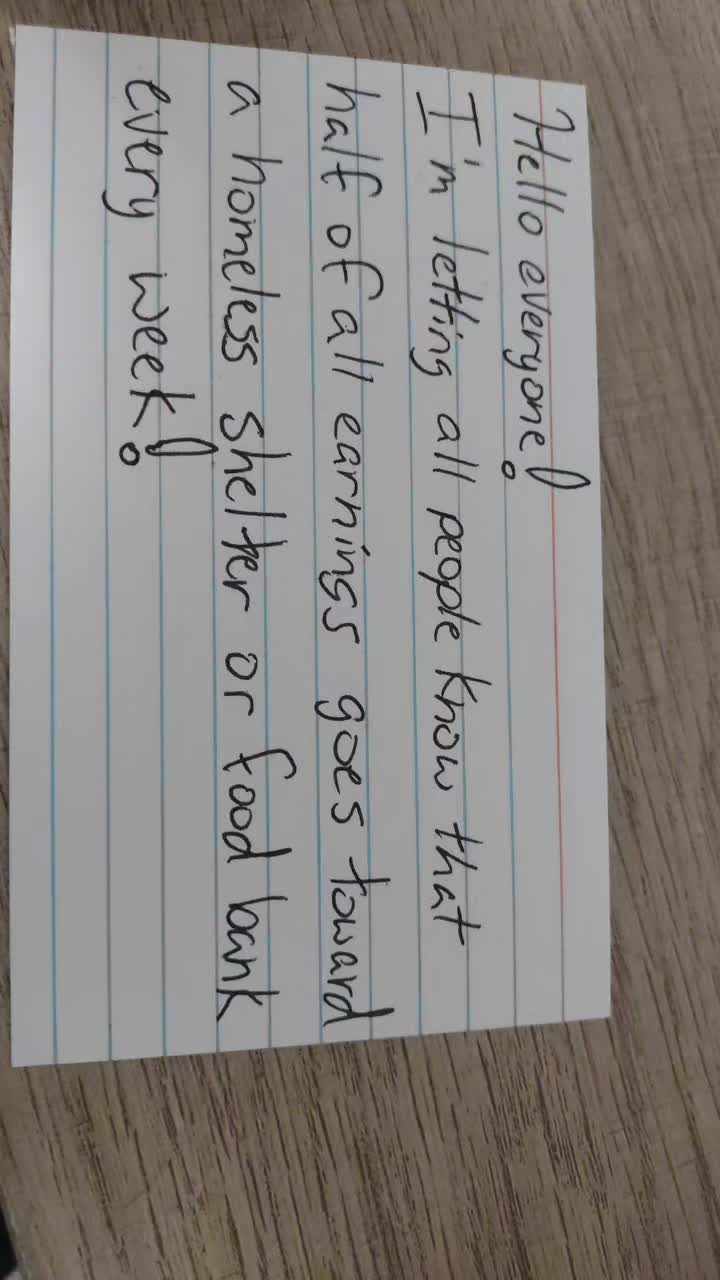 Hello everyone!
I'm letting all people know that
half of all earnings goes toward
a homeless shelter or food bank
every week!